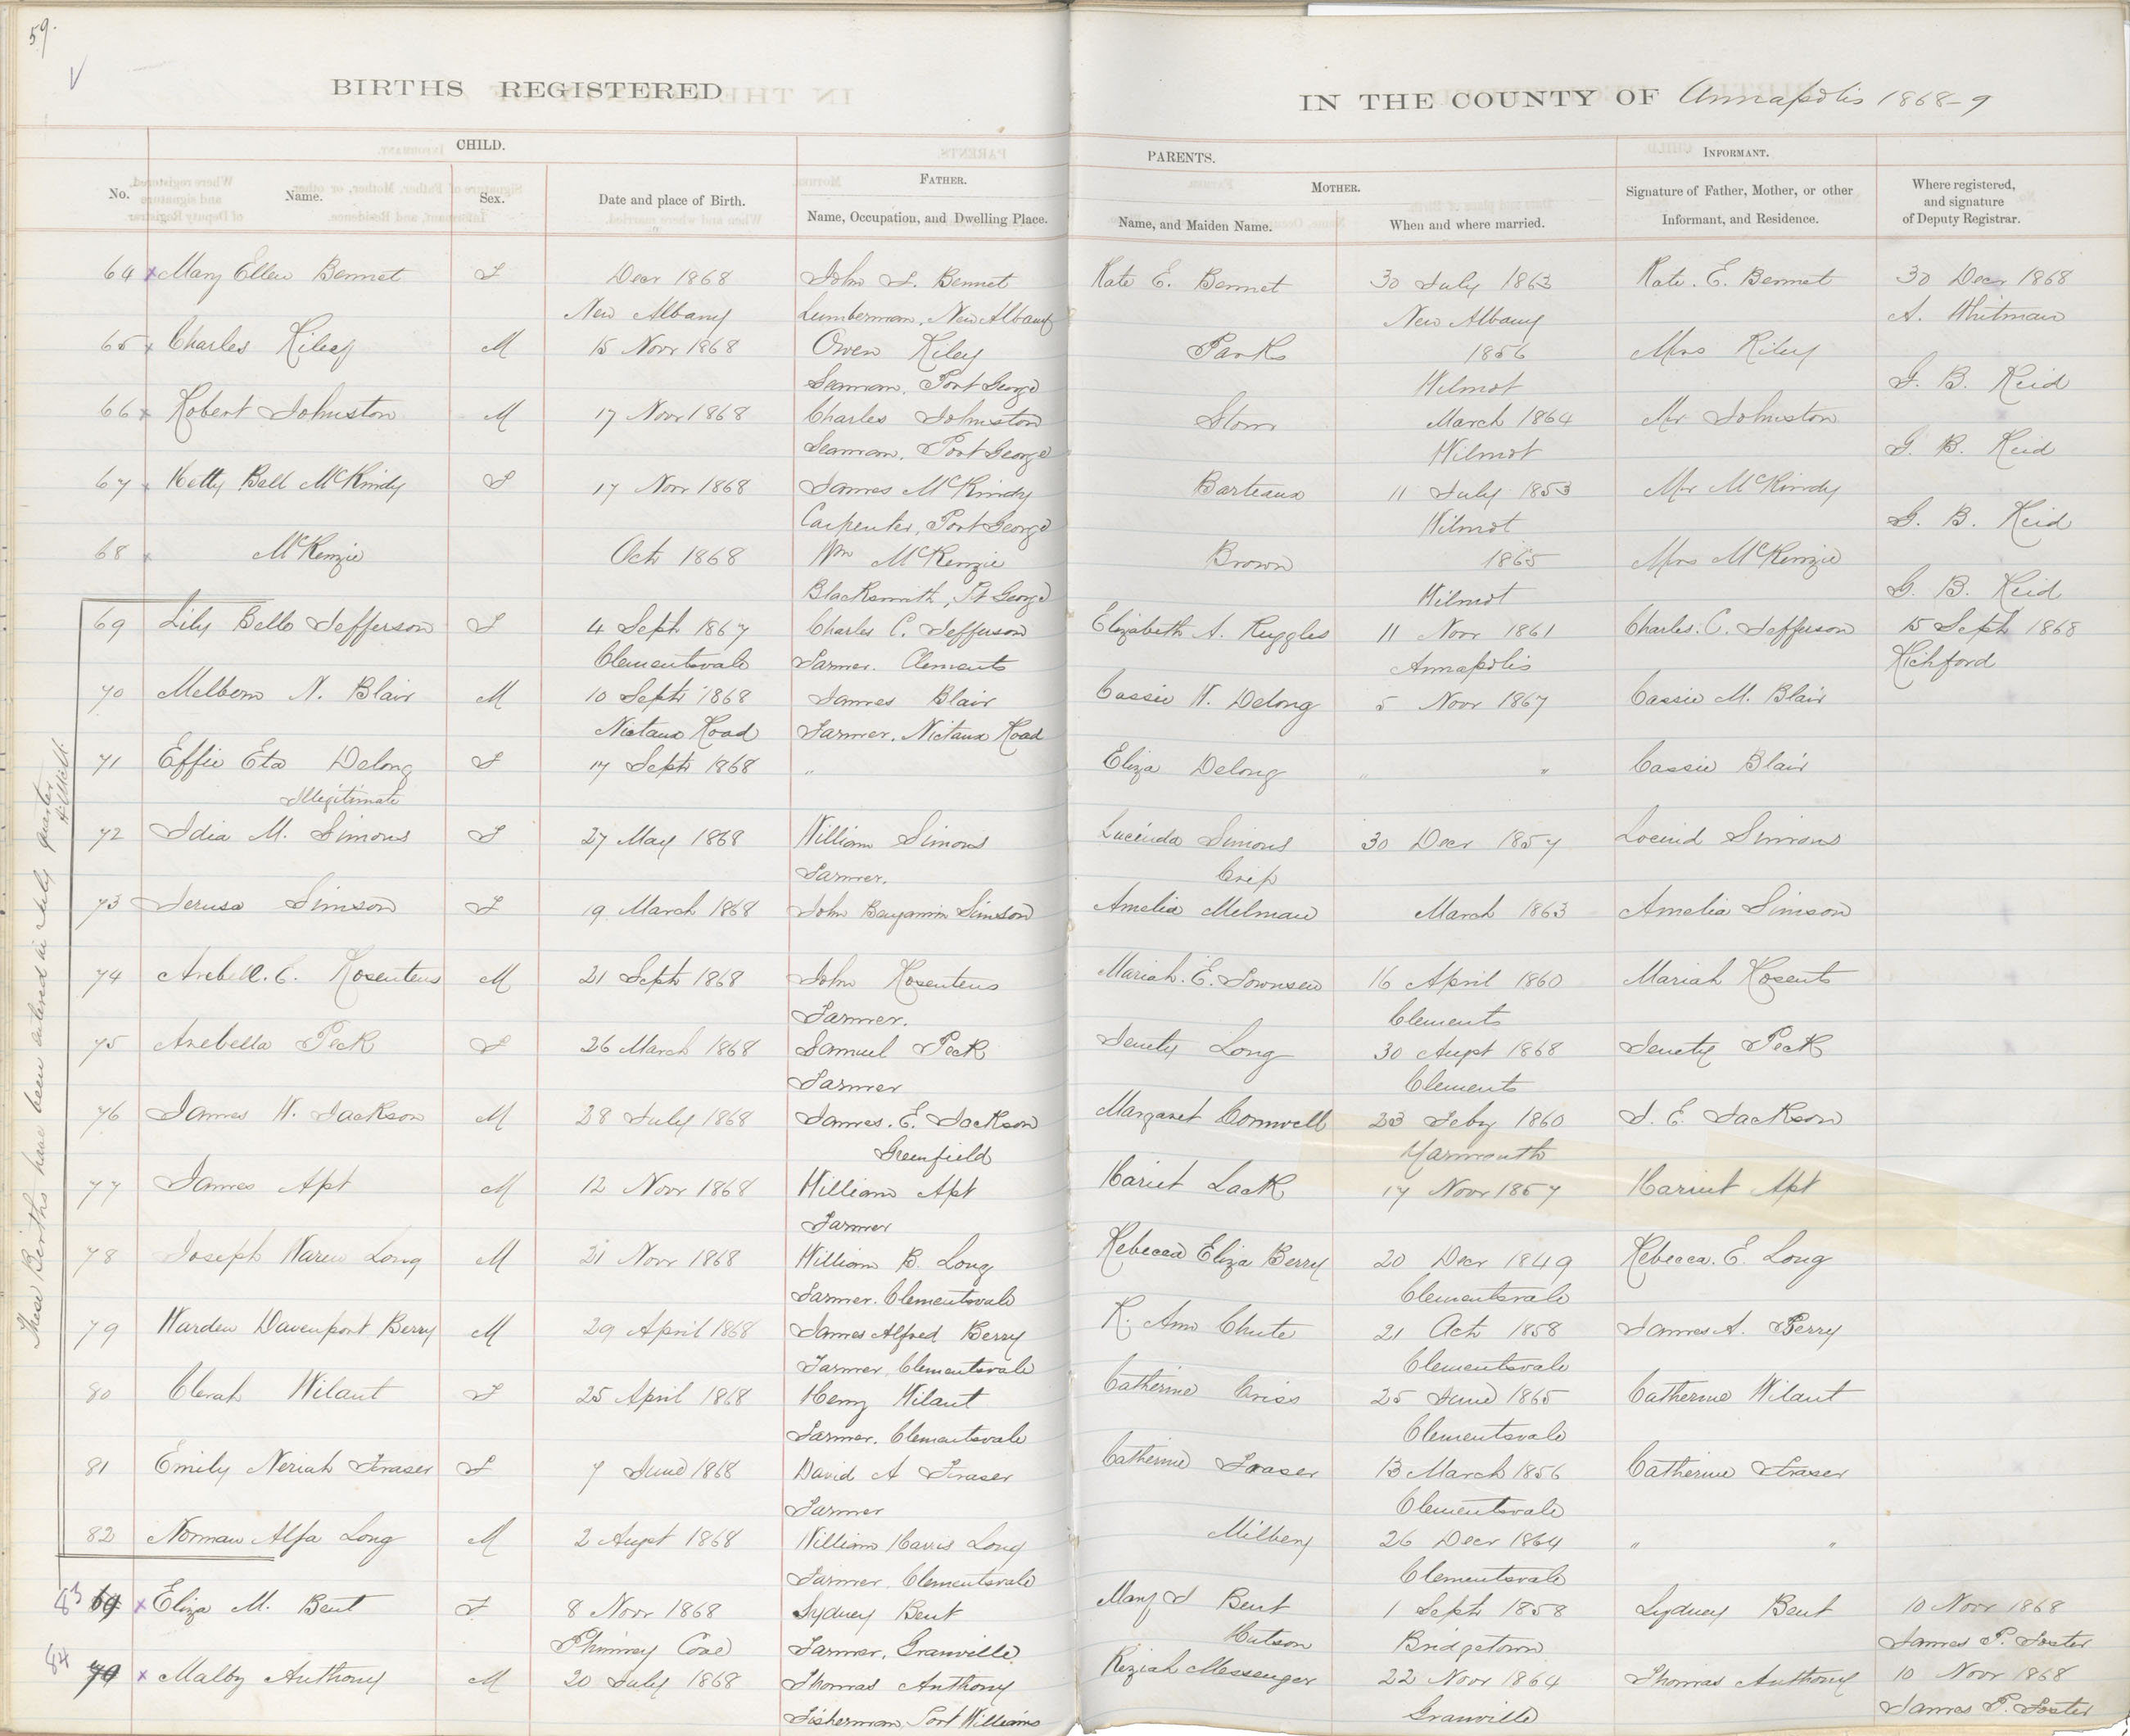 59.
BIRTHS REGISTERED
IN THE COUNTY OF Annapolis 1868-9
CHILD.
PARENTS.
INFORMANT.
No.
Name.
Sex.
Date and place of Birth.
FATHER.
Name, Occupation, and Dwelling Place.
MOTHER.
Name, and Maiden Name.
When and where married.
Signature of Father, Mother, or other
Informant, and Residence.
Where registered,
and signature
of Deputy Registrar.
64 x Mary Ellen Bennet F Decr 1868 John F. Bennet Kate E. Bennet 30 July 1863 Kate. E. Bennet 30 Decr 1868
New Albany Lumberman, New Albany New Albany A. Whitman
65 x Charles Riley M 15 Novr 1868 Owen Riley Parks 1856 Mrs Riley
Seaman, Port George Wilmot G. B. Reid
66 x Robert Johnston M 17 Novr 1868 Charles Johnston March 1864 Mr Johnston
Seaman, Port George Wilmot G. B. Reid
67 x Hetty Bell McKindy F 17 Novr 1868 James McKindy Barteaux 11 July 1853 Mr McKindy
Carpenter, Port George Wilmot G. B. Reid
68 x McKenzie Octr 1868 Wm McKenzie Brown 1865 Mrs McKenzie
Blacksmith, Pt George Wilmot G. B. Reid
69 Lily Bello Jefferson F 4 Septr 1867 Charles C. Jefferson Elizabeth A. Ruggles 11 Novr 1861 Charles. C. Jefferson 15 Septr 1868
Clementsvale Farmer. Clements Annapolis Hichford
70 Melbern N. Blair M 10 Septr 1868 James Blair Cassie W. Delong 5 Novr 1867 Cassie M. Blair
Nictaux Road Farmer, Nictaux Road
71 Effie Eta Delong F 17 Septr 1868 " Eliza Delong " " Cassie Blair
Illegitimate
72 Idia M. Simons F 27 May 1868 William Simons Lucinda Simons 30 Decr 1857 Locuid Simons
Farmer. Crip
73 Jerusa Simson F 19 March 1868 John Benjamin Simson Amelia Milman March 1863 Amelia Simson
74 Arebell. C. Rosenteus M 21 Septr 1868 John Rosenteus Mariah. E. Townsen 16 April 1860 Mariah Rosents
Farmer. Clements
75 Arebella Peck F 26 March 1868 Samuel Peck Long 30 Augst 1868 Peck
Farmer Clements
76 James W. Jackson M 28 July 1868 James. E. Jackson Margaret Cornwell 23 Feby 1860 J. E. Jackson
Greenfield Yarmouth
77 James Apt M 12 Novr 1868 William Apt Hariet Lack 17 Novr 1857 Hariet Apt
Farmer
78 Joseph Waren Long M 21 Novr 1868 William B. Long Rebecca Eliza Berry 20 Decr 1849 Rebecca. E. Long
Farmer. Clementsvale Clementsvale
79 Warden Davenport Berry M 29 April 1868 James Alfred Berry R. Ann Chute 21 Octr 1858 James A. Berry
Farmer, Clementsvale Clementsvale
80 Clerah Wilant F 25 April 1868 Henry Wilant Catherine Criss 25 June 1865 Catherine Wilant
Farmer. Clementsvale Clementsvale
81 Emily Neriah Fraser F 7 June 1868 David A Fraser Catherine Fraser 13 March 1856 Catherine Fraser
Farmer Clementsvale
82 Norman Alfa Long M 2 Augst 1868 William Harris Long Milbery 26 Decr 1864 " "
Farmer, Clementsvale Clementsvale
83 69 x Eliza M. Bent F 8 Novr 1868 Sydney Bent Mary J Bent 1 Septr 1858 Sydney Bent 10 Novr 1868
Phinney Cove Farmer, Granville Hutson Bridgetown James P. Foster
84 70 x Malby Anthony M 20 July 1868 Thomas Anthony Keziah Messenger 22 Novr 1864 Thomas Anthony 10 Novr 1868
Fisherman, Port Williams Granville James P. Foster
These Births have been entered in July quarter